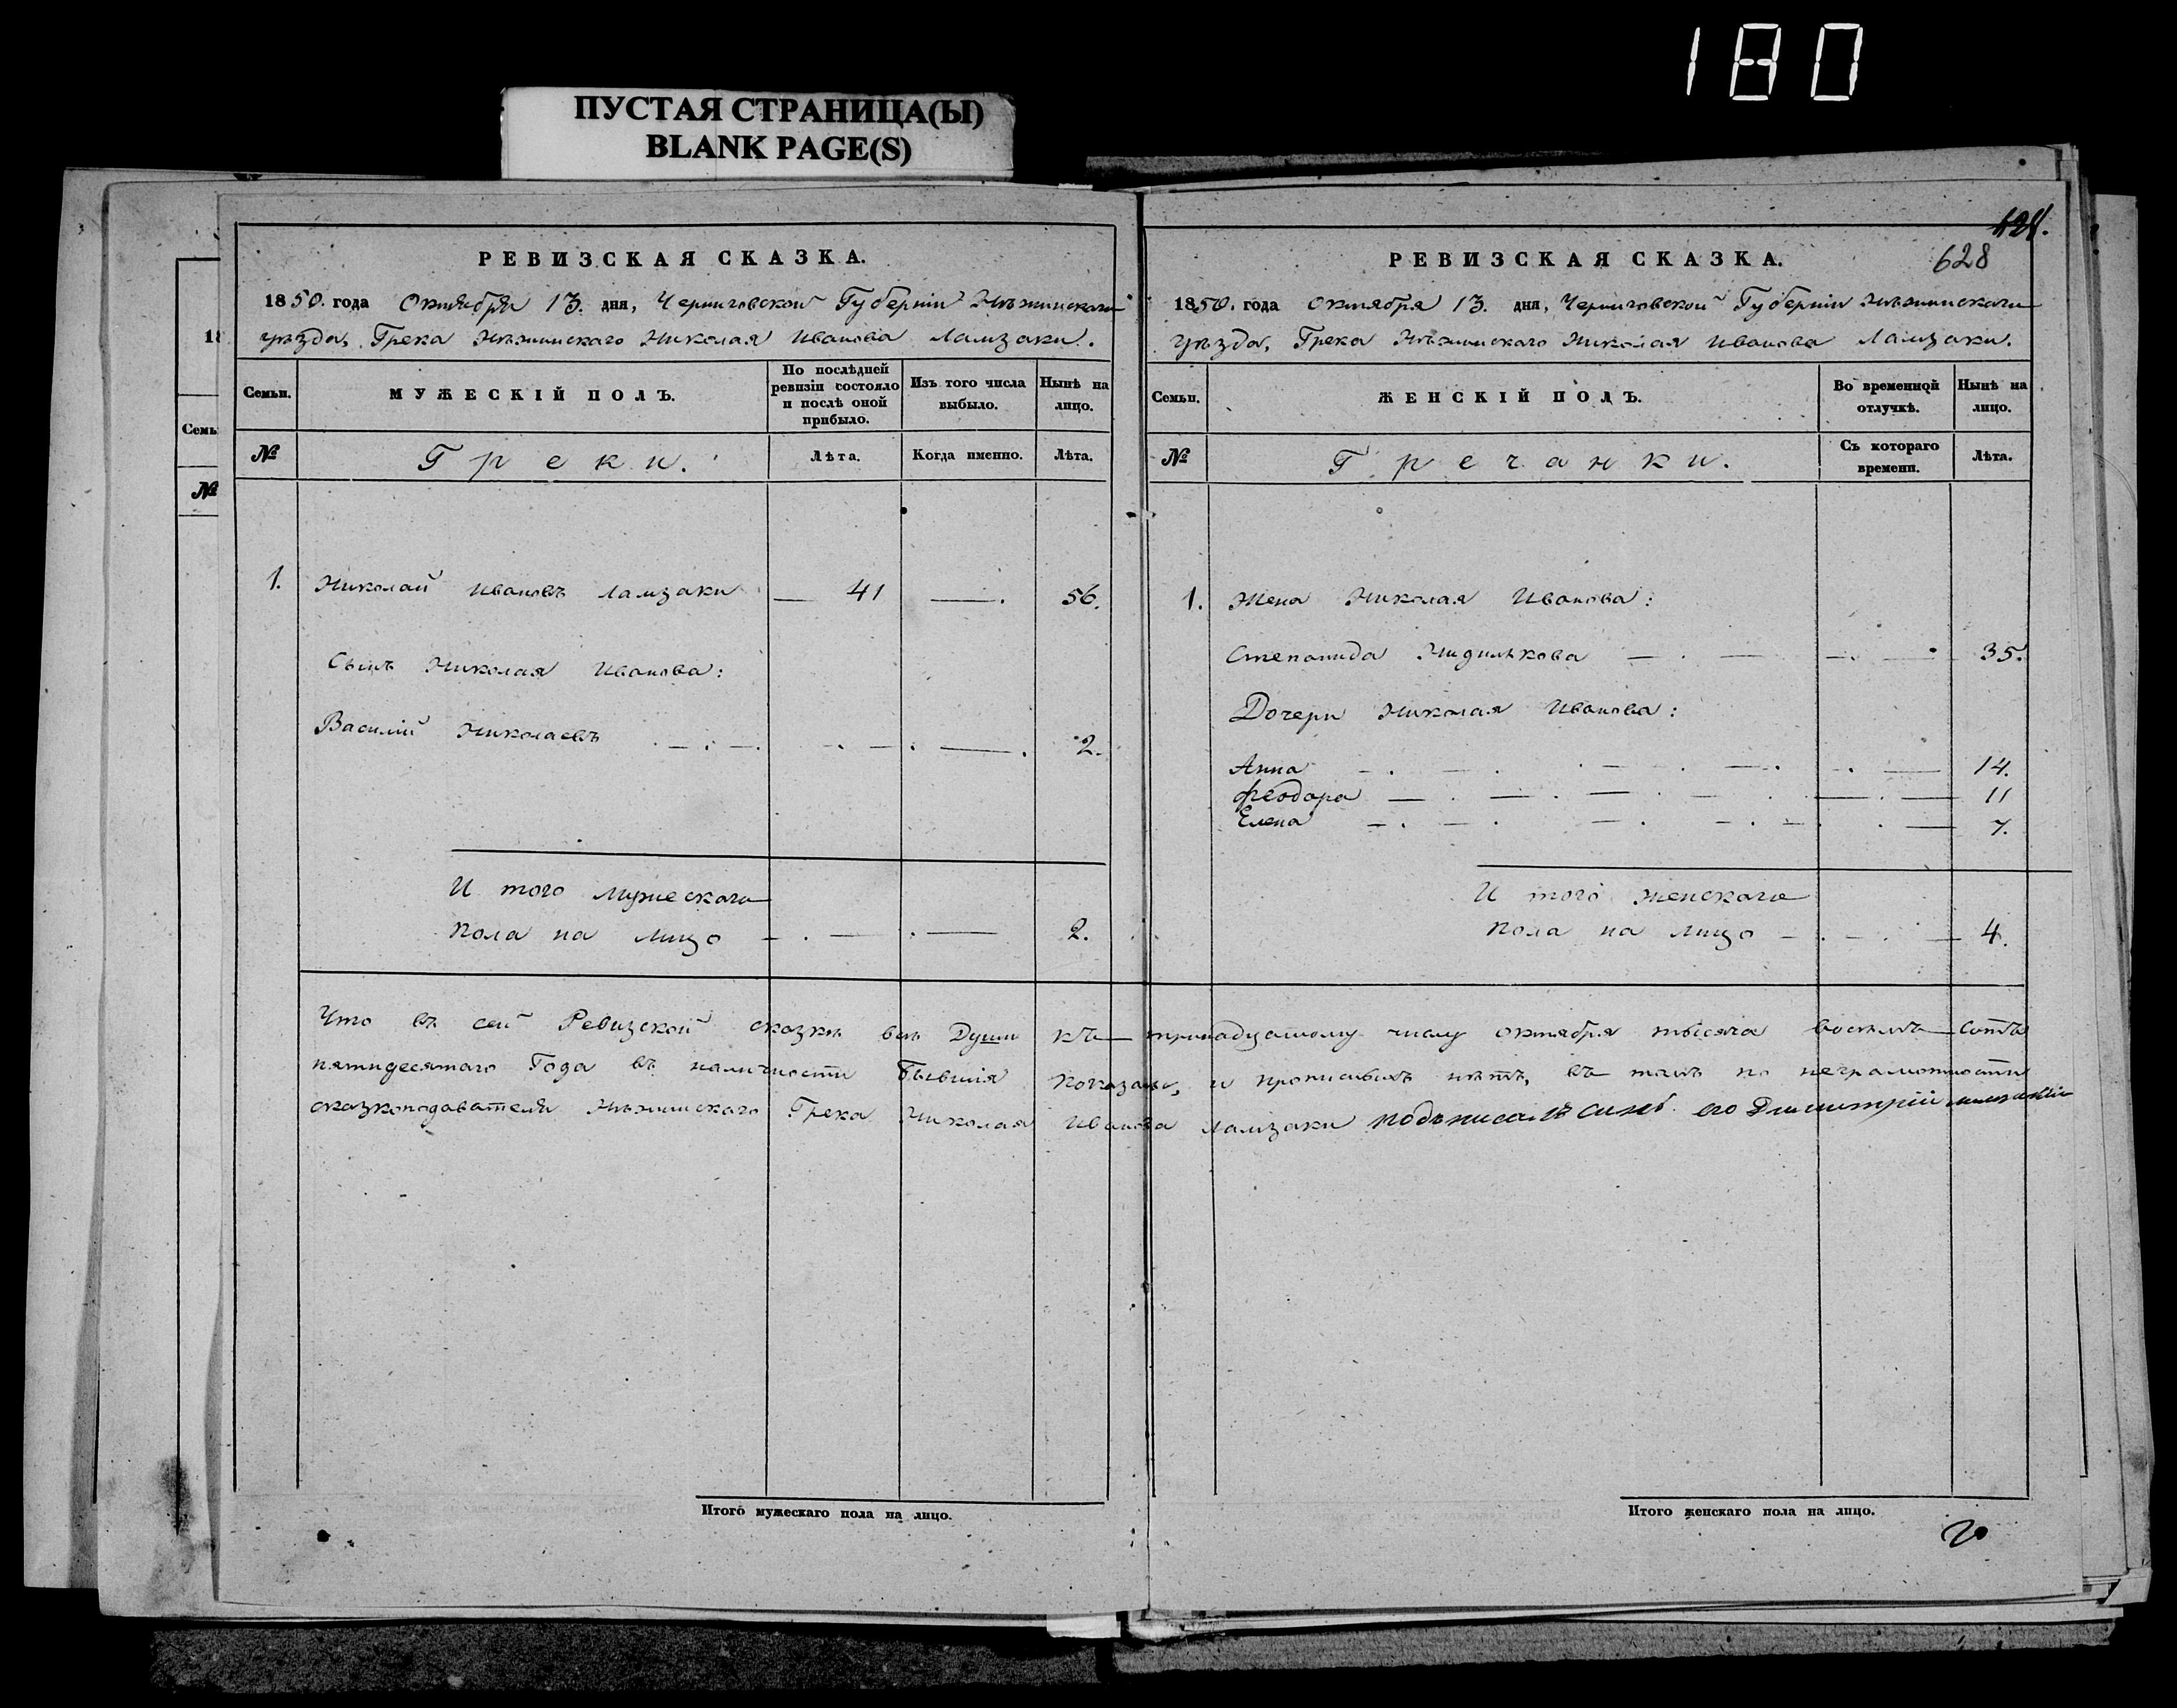 180
ПУСТАЯ СТРАНИЦА(Ы)
BLANK PAGE(S)
18
Семь
№
РЕВИЗСКАЯ СКАЗКА.
1850. года Октября 13. дня, Черниговской Губерніи Нѣжинскаго
уѣзда, Грека Нѣжинскаго Николая Иванова Ламзаки.
Семьи.
МУЖЕСКІЙ ПОЛЪ.
По послѣдней ревизіи состояло и послѣ оной прибыло.
Изъ того числа выбыло.
Нынѣ на лицо.
№
Греки.
Лѣта.
Когда именно.
Лѣта.
1. Николай Ивановъ Ламзаки — 41 —. 56.
Сынъ Николая Иванова:
Василій Николаевъ 2.
И того мужескаго
пола на лицо 2.
Итого мужескаго пола на лицо.
628
РЕВИЗСКАЯ СКАЗКА.
1850. года Октября 13. дня, Черниговской Губерніи Нѣжинскаго
уѣзда, Грека Нѣжинскаго Николая Иванова Ламзаки.
Семьи.
ЖЕНСКІЙ ПОЛЪ.
Во временной отлучкѣ.
Нынѣ на лицо.
№
Гречанки.
Съ котораго времени.
Лѣта.
1. Жена Николая Иванова:
Степанида 35.
Дочери Николая Иванова:
Анна 14.
Феодора 11
Елена 7.
И того женскаго
пола на лицо 4.
Что въ сей Ревизской сказкѣ всѣ Души къ тринадцатому числу октября тысяча восемь сотъ
пятидесятаго Года въ наличности бывшія показаны, и прописныхъ нѣтъ, въ томъ по неграмотности
сказкоподавателя Нѣжинскаго Грека Николая Иванова Ламзаки подъписалъ синъ его Дмитрій
Итого женскаго пола на лицо.